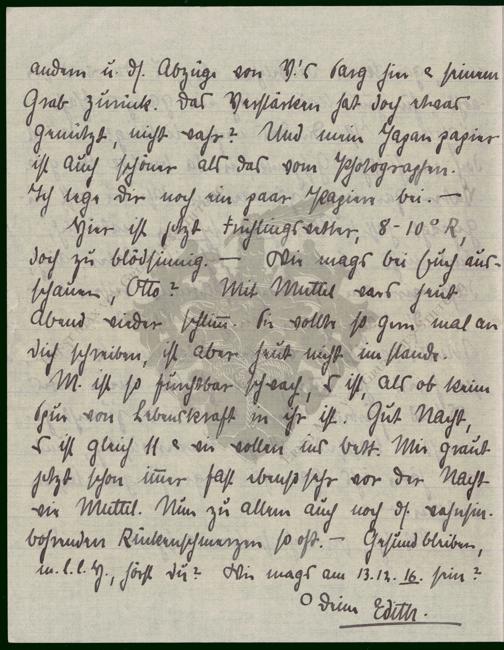 andern u. ds. Abzüge von V.'s Sarg hin & seinem
Grab zurück. Das Verstärken hat doch etwas
genützt, nicht wahr? Und mein Japanpapier
ist auch schöner als das vom Photographen.
Ich lege dir noch ein paar Papiere bei. —
Hier ist jetzt Frühlingswetter, 8-10° R,
doch zu blödsinnig. — Wie mags bei Euch aus-
schauen, Otto? Mit Muttel wars heut
abend wieder schlim̅. Sie wollte so gern mal an
dich schreiben, ist aber heut nicht imstande.
M. ist so furchtbar schwach, s ist, als ob kein
Spur von Lebenskraft in ihr ist. Gut Nacht,
s ist gleich 11 & wir wollen ins Bett. Mir graut
jetzt schon im̅er fast ebensosehr vor der Nacht
wie Muttel. Nun zu allem auch noch ds. wahnsin.
bohrenden Rückenschmerzen so oft. — Gesund bleiben,
m. l. l. H., hörst du? Wie mags am 13.12.16. sein?
Deine Edith.